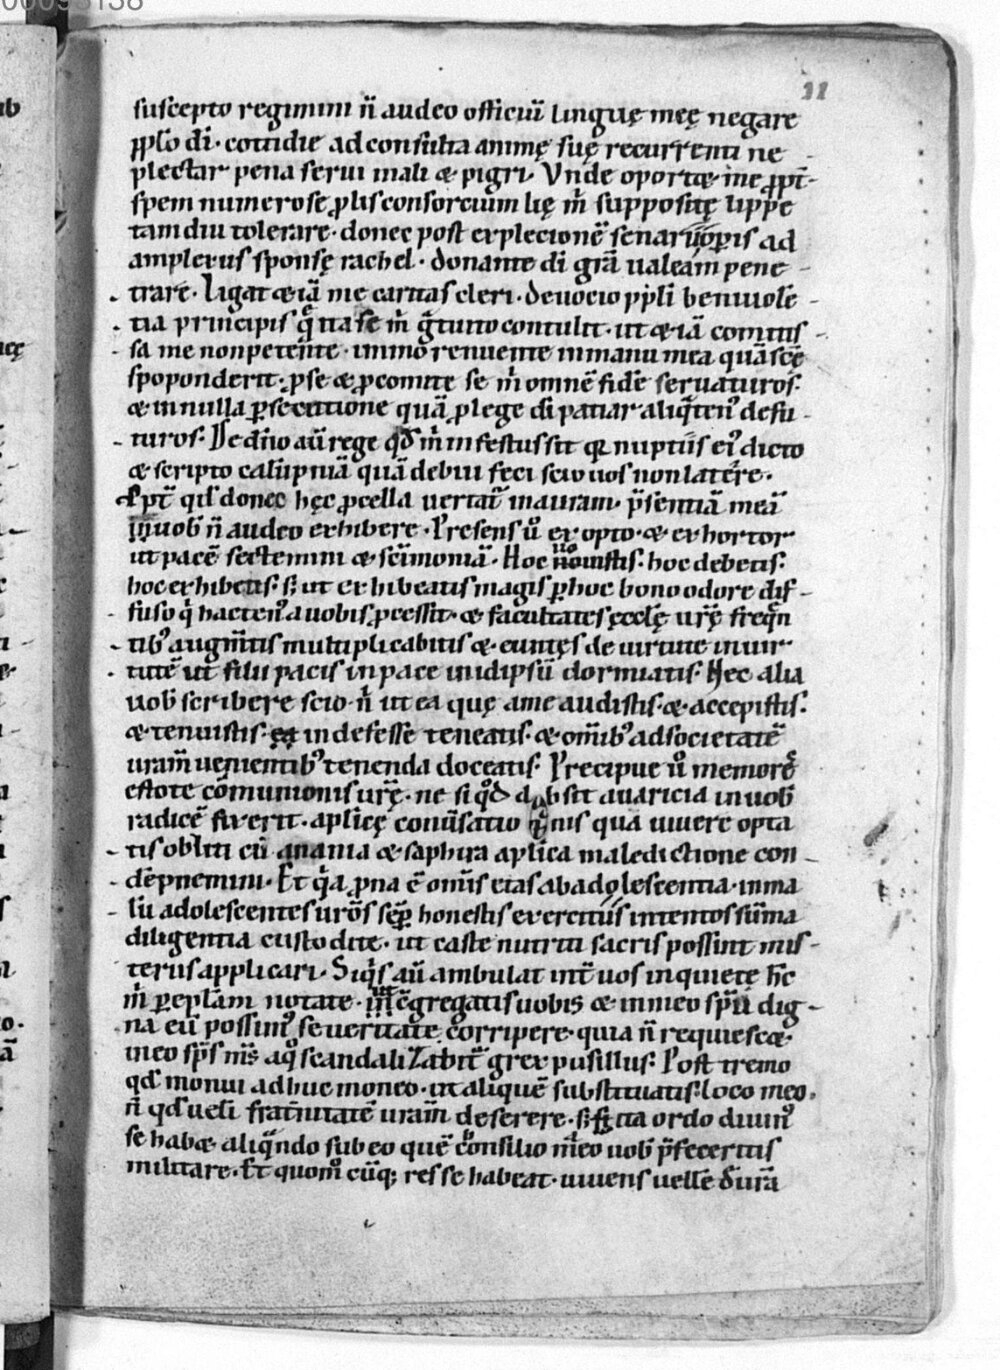 00095138
11
suscepto regimini n̄ audeo officiū linguę meę negare
pp̄lo dī. cottidie ad consulta animę suę recurrenti ne
plectar pena serui mali & pigri. Vnde oportꝫ me ꝓpt̄
spem numerose ꝓlis consorcium lię m̄ suppositę lippę
tamdiu tolerare. donec post explecionē senarii opis ad
amplexus sponsę rachel. donante dī gr̄a ualeam pene
trare. Ligat & iā me caritas cleri. deuocio pp̄li beniuolē
tia principis q̄ ita se m̄ gͣtuito contulit. ut & iā comitis
sa me non petente. immo renuente in manu mea quā scē
spoponderit. ꝓ se & ꝓ comite se m̄ omnē fidē seruaturos.
& in nulla ꝑsecutione quā ꝓ lege dī patiar aliq̄ten᾽ defu
turos. De dn̄o aū rege qd̄ m̄ infestus sit qꝛ nuptiis ei᾽ dicto
& scripto calūpniā quā debui feci scio uos non latere.
Ꝓpt̄ qd̄ donec hęc ꝓcella uertat̄ in auram. p̄sentiā meā
uob̄ n̄ audeo exhibere. Presens ū exopto. & exhortor
ut pacē sectemini & scīmoniā. Hoc nouistis. hoc debetis.
hoc exhibetis. s; ut exhibeatis magis ꝑ hoc bono odore dif
fuso q̄ hacten᾽ a uobis ꝓcessit. & facultates ęcclę urę̄ freq̄n
tib᾽ augm̄tis multiplicabitis & euntes de uirtute in uir
tutē ut filii pacis in pace in idipsū dormiatis. Nec alia
uob̄ scribere scio. n̄ ut ea quę a me audistis. & accepistis.
& tenuistis. indefesse teneatis. & om̄ib᾽ ad societatē
uram̄ uenientib᾽ tenenda doceatis. Precipue ū memore᷒
estote cōmunionis urę̄. ne si qd̄ absit auaricia in uob̄
radicē fixerit. aplīcę conūsatio nis qua uiuere opta
tis oblīti cū anania & saphira aplīca maledictione con
dēpnemini. Et q̄a ꝓna ē om̄is etas ab adolescentia in ma
lū adolescentes urōs sēꝑ honestis exercitiis intentos sūma
diligentia custodite. ut caste nutriti sacris possint mis
teriis applicari. Siq̄s aū ambulat int̄ uos inquiete hc̄
m̄ ꝑ epl̄am notate. ut c̄gregatis uobis & in meo sp̄u dig
na eū possim᾽ seueritate corripere. quia n̄ requiescꝫ
in eo sp̄s m̄s aq° scandalizabit̄ grex pusillus. Post tremo
qd̄ monui adhuc moneo. ut aliquē substituatis loco meo.
n̄ qd̄ uelī frat̄nitatē uram̄ deserere. s; si ita ordo diuin᾽
se habꝫ aliq̄ndo sub eo quē c̄silio meo uob̄ p̄feceritis
militare. Et quom° cūq; res se habeat. uiuens uellē d̄ ura